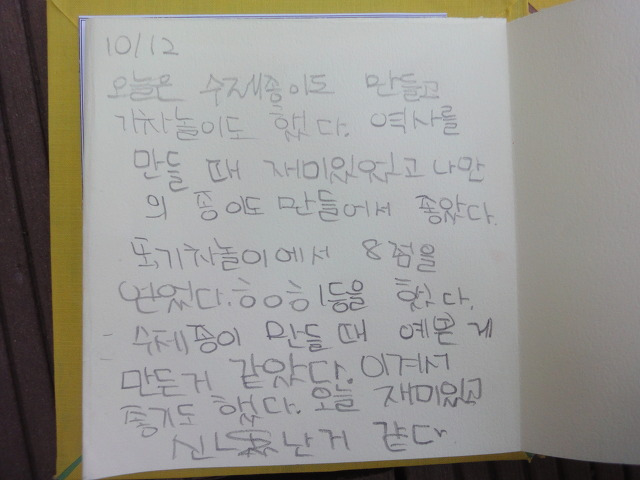 10/12
오늘은 수제종이도 만들고
기차놀이도 했다. 역사를
만들 때 재미있었고 나만
의 종이도 만들어서 좋았다.
또, 기차놀이에서 8점을
얻었다. 1등을 했다.
수제종이 만들 때 예쁜 게
만든거 같았다. 이겨서
좋기도 했다. 오늘 재미있고
신 난거 같다